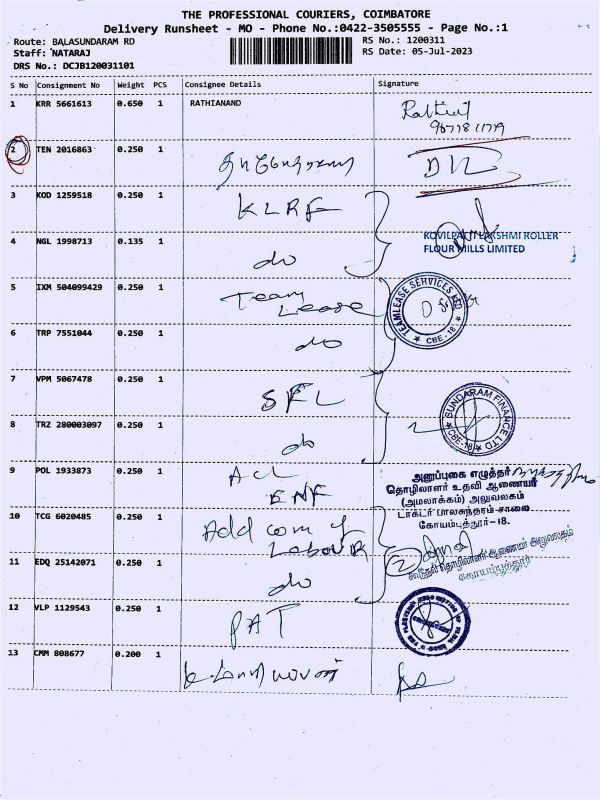 THE PROFESSIONAL COURIERS, COIMBATORE
Delivery Runsheet - MO - Phone No.:0422-3505555 - Page No.:1
Route: BALASUNDARAM RD
RS No.: 1200311
Staff: NATARAJ
RS Date: 05-Jul-2023
DRS No.: DCJB120031101
S No Consignment No Weight PCS Consignee Details Signature
1 KRR 5661613 0.650 1 RATHIANAND
2 TEN 2016863 0.250 1
3 KOD 1259518 0.250 1 KLRF
KOVILPATTI LAKSHMI ROLLER
FLOUR MILLS LIMITED
4 NGL 1998713 0.135 1 do
5 IXM 504099429 0.250 1 Team Lease
TEAMLEASE SERVICES LTD
★ CBE-18 ★
6 TRP 7551044 0.250 1 do
7 VPM 5067478 0.250 1 SFL
SUNDARAM FINANCE LTD
CBE-18
8 TRZ 280003097 0.250 1 do
9 POL 1933873 0.250 1 ACL
ENF
அனுப்புகை எழுத்தர்
தொழிலாளர் உதவி ஆணையர்
(அமலாக்கம்) அலுவலகம்
டாக்டர் பாலசுந்தரம் சாலை
கோயம்புத்தூர்-18.
10 TCG 6020485 0.250 1 Add com of
Labour
2
கூடுதல் தொழிலாளர் ஆணையர் அலுவலகம்
கோயம்புத்தூர்
11 EDQ 25142071 0.250 1 do
12 VLP 1129543 0.250 1 PAT
13 CMM 808677 0.200 1